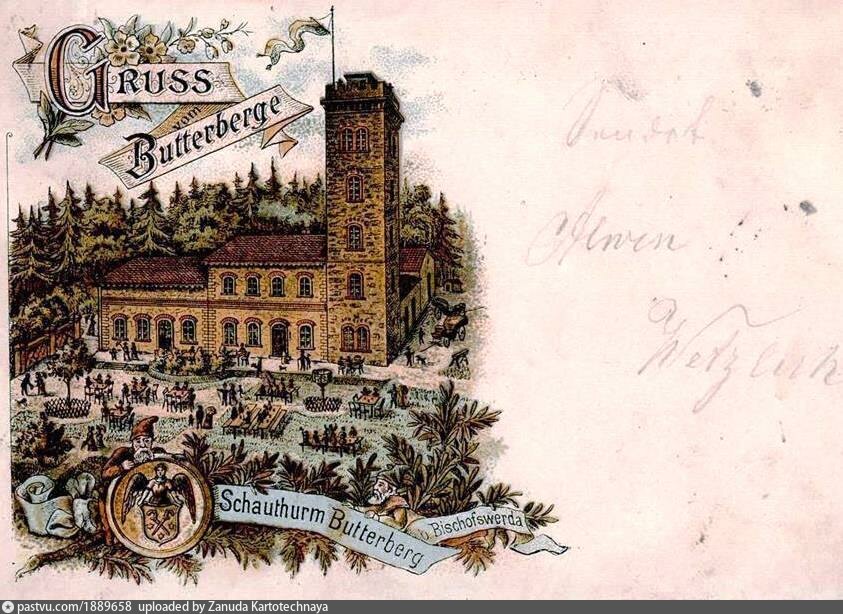 GRUSS
vom
Butterberge
Sendet
Alwin
Schauthurm Butterberg
Bischofswerda
pastvu.com/1889658 uploaded by Zanuda Kartotechnaya